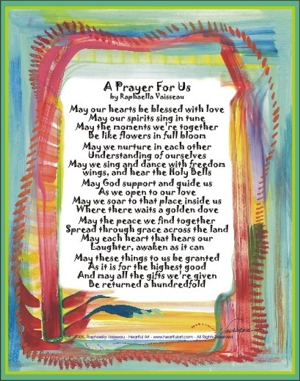 A Prayer For Us
by Raphaella Vaisseau
May our hearts be blessed with love
May our spirits sing in tune
May the moments we're together
Be like flowers in full bloom
May we nurture in each other
Understanding of ourselves
May we sing and dance with freedom
wings, and hear the Holy Bells
May God support and guide us
As we open to our love
May we soar to that place inside us
Where there waits a golden dove
May the peace we find together
Spread through grace across the land
May each heart that hears our
Laughter, awaken as it can
May these things to us be granted
As it is for the highest good
And may all the gifts we're given
Be returned a hundredfold
Raphaella Vaisseau · Heartful Art · www.heartfulart.com · All Rights Reserved